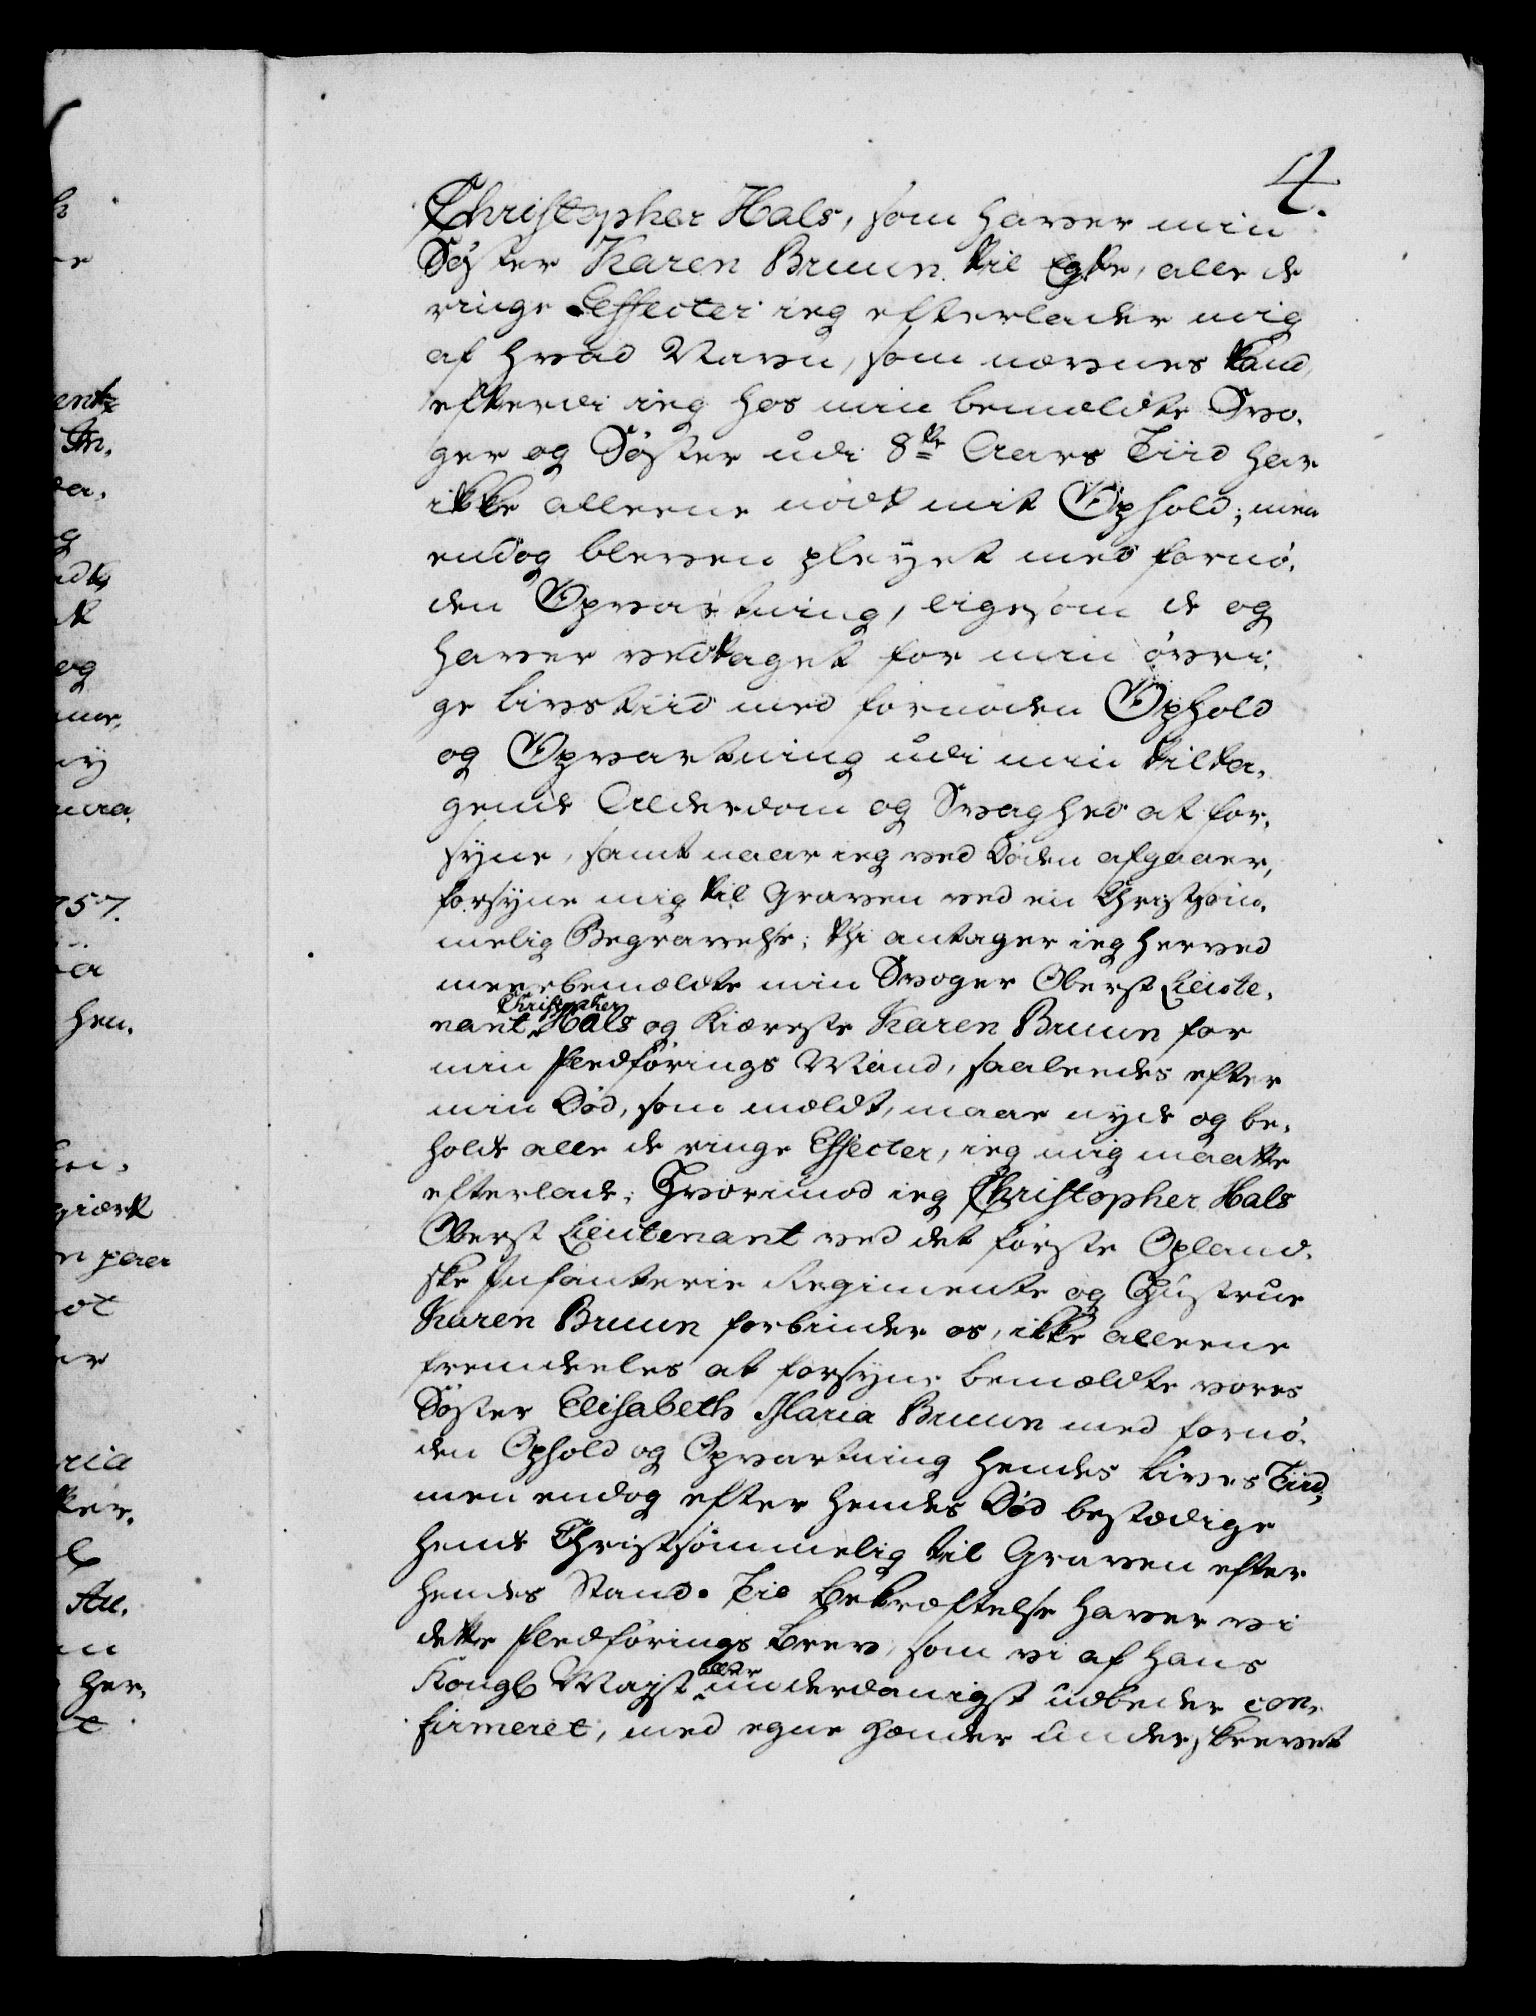 4.
Christopher Hals, som haver min
Søster Karen Bruun til Egte, alle de
ringe Effecter ieg efterlader mig
af hvad Navn, som nævnes kand,
efterdi ieg hos min bemældte Svo,
ger og Søster udi 8te Aars Tiid har
ikke alleene nødt mit Ophold; men
endog bleven pleyet med fornø,
den Opvartning, ligesom de og
haver vedtaget for min øvri,
ge Livstiid med fornøden Ophold
og Opvartning udi min tilta,
gende Alderdom og Svaghed at for,
syne, samt naar ieg ved Døden afgaaer,
forsyne mig til Graven ved en Christsøm,
melig Begravelse; thi antager ieg herved
meerbemældte min Svoger Oberst Lieute,
Christopher
nant Hals og Kiæreste Karen Bruun for
min Fledførings Mænd, saaleedes efter
min Død, som mældt, maae nyde og be,
holde alle de ringe Effecter, ieg mig maatte
efterlade; Hvorimod ieg Christopher Hals
Oberst Lieutenant ved det første Opland,
ske Infanterie Regimente og Hustrue
Karen Bruun forbinder os, ikke alleene
fremdeeles at forsyne bemældte vores
Søster Elisabeth Maria Bruun med fornø,
den Ophold og Opvartning hendes Livs Tiid,
men endog efter hendes Død bestædige
hende Christsømmelig til Graven efter
hendes Stand. Til Bekræftelse haver vi
dette Fledførings Brev, som vi af Hans
aller
Kongl Mayst underdanigst udbeder con,
firmeret, med egne Hænder underskrevet
h
re
entz
In,
da,
g
og
ny
757.
a
hen,
n perer
ot
er
ria
ker,
Au,
n
her,
t